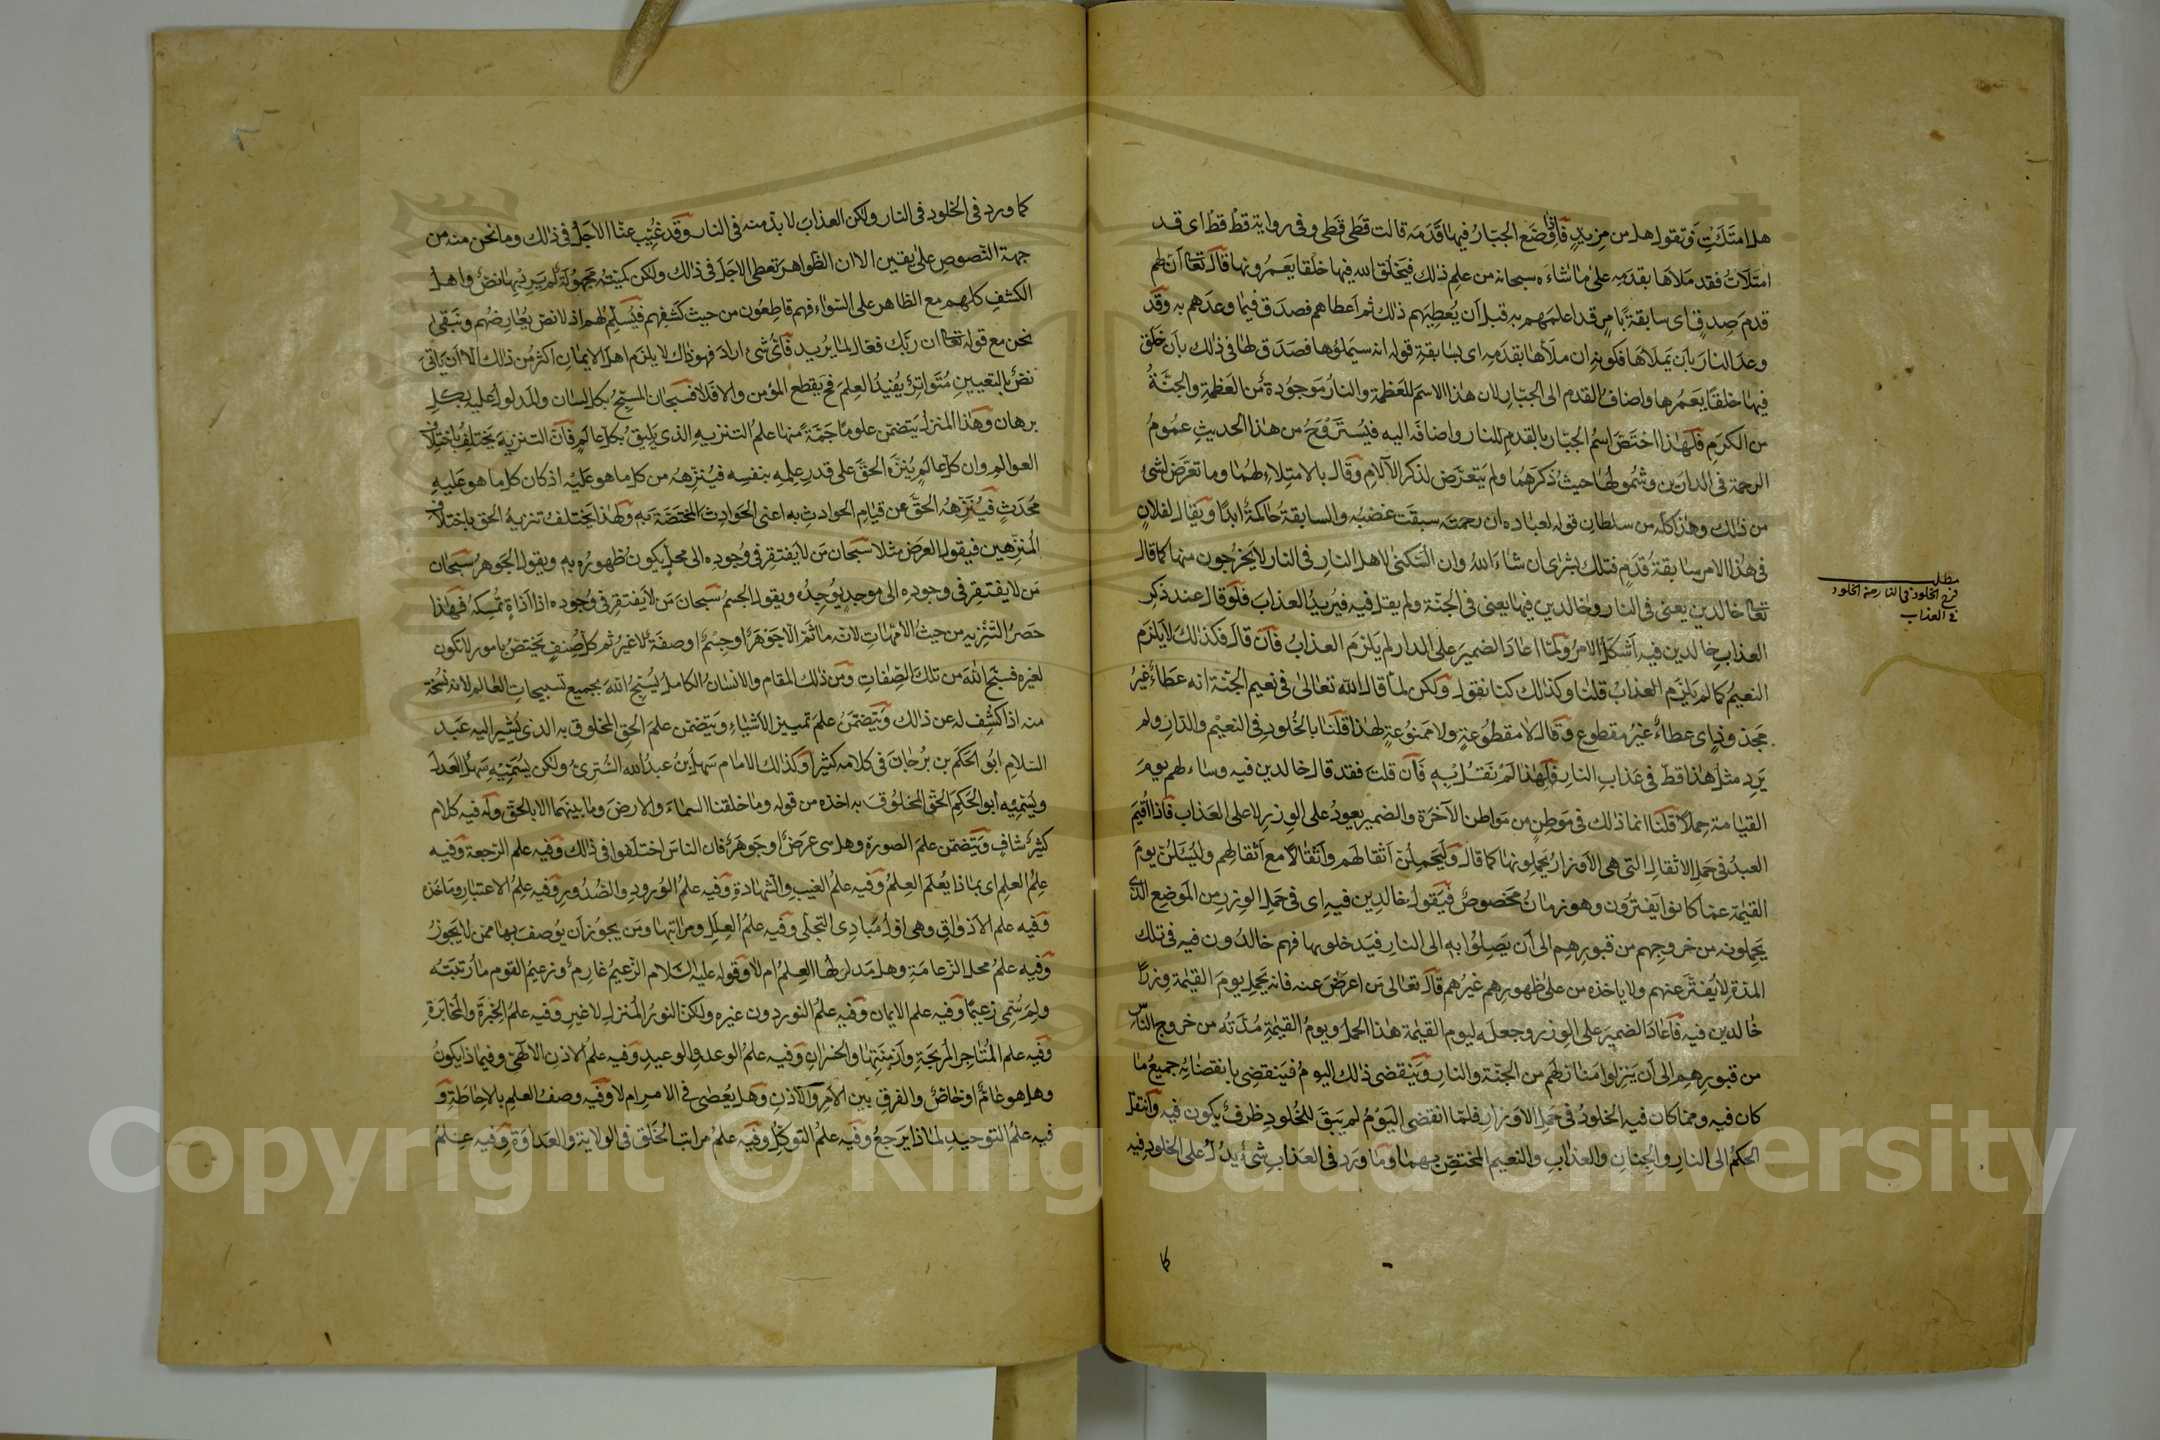 هل امتلأت وتقول هل من مزيد فاذا وضع الجبار فيها قدمه قالت قطى قطى وفى رواية قط قط اى قد
امتلأت فقد ملأها بقدمه على ما شاءه سبحانه من علم ذلك فيخلق الله فيها خلقا يعمرونها قال تعا ان لهم
قدم صدق اى سابقة بامر قد اعلمهم به قبل ان يعطيهم ذلك ثم اعطاهم فصدق فيما وعدهم به وقد
وعد النار بان يملأها فكونه ان ملأها بقدمه اى بسابقة قوله انه سيملؤها فصدق لها فى ذلك بان خلق
فيها خلقا يعمرها واضاف القدم الى الجبار لان هذا الاسم للعظمة والنار موجودة من العظمة والجنة
من الكرم فلهذا اختص اسم الجبار بالقدم للنار واضافه اليه فيستروح من هذا الحديث عموم
الرحمة فى الدارين وشمولها حيث ذكرهما ولم يتعرض لذكر الآلام وقال بالامتلاء لهما وما تعرض لشئ
من ذلك وهذا كله من سلطان قوله لعباده ان رحمته سبقت غضبه والسابقة حاكمة ابدا ويقال لفلان
فى هذا الامر سابقة قدم فتلك بشرى ان شاء الله وان السكنى لاهل النار فى النار لا يخرجون منها كما قال
تعا خالدين يعنى فى النار وخالدين فيها يعنى فى الجنة ولم يقل فيه فيريد العذاب فلو قال عند ذكر
العذاب خالدين فيه اشكل الامر ولما اعاد الضمير على الدار لم يلزم العذاب فان قال فكذلك لا يلزم
النعيم كما لم يلزم العذاب قلنا وكذلك كنا نقول ولكن لما قال الله تعالى فى نعيم الجنة انه عطاء غير
مجذوذ اى عطاء غير مقطوع وقال لا مقطوعة ولا ممنوعة لهذا قلنا بالخلود فى النعيم والدار ولم
يرد مثل هذا قط فى عذاب النار فلهذا لم نقل به فان قلت فقد قال خالدين فيه وساء لهم يوم
القيامة حملا قلنا انما ذلك فى موطن من مواطن الآخرة والضمير يعود على الوزر لا على العذاب فاذا اقيم
العبد فى حمل الاثقال التى هى الاوزار يحملونها كما قال وليحملن اثقالهم واثقالا مع اثقالهم وليسئلن يوم
القيمة عما كانوا يفترون وهو زمان مخصوص فيقول خالدين فيه اى فى حمل الوزر من الموضع الذى
يحملونه من خروجهم من قبورهم الى ان يصلوا به الى النار فيدخلوها فهم خالدون فيه فى تلك
المدة لا يفتر عنهم ولا ياخذه من على ظهورهم غيرهم قال تعالى من اعرض عنه فانه يحمل يوم القيمة وزرا
خالدين فيه فاعاد الضمير على الوزر وجعله ليوم القيمة هذا الحمل ويوم القيمة مدته من خروج الناس
من قبورهم الى ان ينزلوا منازلهم من الجنة والنار وينقضى ذلك اليوم فينقضى بانقضائه جميع ما
كان فيه ومما كان فيه الخلود فى حمل الاوزار فلما انقضى اليوم لم يبق للخلود ظرف يكون فيه وانتقل
الحكم الى النار والجنان والعذاب والنعيم المختص بهما وما ورد فى العذاب شئ يدل على الخلود فيه
كا
مطلب
فرح الخلود فى النار من الخلود
فى العذاب
كما ورد فى الخلود فى النار ولكن العذاب لا بد منه فى النار وقد غيب عنا الاجل فى ذلك وما نحن منه من
جهة النصوص على يقين الا ان الظواهر تعطى الاجل فى ذلك ولكن كميته مجهولة لم يرد فيها نص واهل
الكشف كلهم مع الظاهر على السواء فهم قاطعون من حيث كشفهم فيسلم لهم اذ لا نص يعارضهم ونبقى
نحن مع قوله تعا ان ربك فعال لما يريد فاى شئ اراد فهو ذاك لا يلزم اهل الايمان اكثر من ذلك الا ان ياتى
نص بالتعيين متواتر يفيد العلم فح يقطع المؤمن والا فلا فسبحان المسبح بكل لسان والمدلول عليه بكل
برهان وهذا المنزل يتضمن علوما جمة منها علم التنزيه الذى يليق بكل عالم فان التنزيه يختلف باختلاف
العوالم وان كل عالم ينزه الحق على قدر علمه بنفسه فينزهه من كل ما هو عليه اذ كان كل ما هو عليه
محدث فينزه الحق عن قيام الحوادث به اعنى الحوادث المختصة به ولهذا يختلف تنزيه الحق باختلاف
المنزهين فيقول العرض مثلا سبحان من لا يفتقر فى وجوده الى محل يكون ظهوره به ويقول الجوهر سبحان
من لا يفتقر فى وجوده الى موجد يوجده ويقول الجسم سبحان من لا يفتقر فى وجوده اذا اداة تمسكه فهذا
حصر التنزيه من حيث الامهات لانه ما ثم الا جوهر او جسم او صفة لا غير ثم كل صنف يختص بامور لا تكون
لغيره فسبح الله من تلك الصفات ومن ذلك المقام والانسان الكامل يسبح الله بجميع تسبيحات العالم لانه نسخة
منه اذا كشف له عن ذلك ويتضمن علم تمييز الاشياء ويتضمن علم الحق المخلوق به الذى يشير اليه عبد
السلام ابو الحكم بن برجان فى كلامه كثيرا وكذلك الامام سهل بن عبد الله التسترى ولكن يسميه سهل العدل
ويسميه ابو الحكم الحق المخلوق به اخذه من قوله وما خلقنا السماء والارض وما بينهما الا بالحق وله فيه كلام
كثير شاف ويتضمن علم الصورة وهل هى عرض او جوهر فان الناس اختلفوا فى ذلك وفيه علم الرجعة وفيه
علم العلم اى بما ذا يعلم العلم وفيه علم الغيب والشهادة وفيه علم الورود والصدور وفيه علم الاعتبار وماخذه
وفيه علم الاذواق وهى اول مبادى التجلى وفيه علم العلل ومراتبها ومن يجوز ان يوصف بها ممن لا يجوز
وفيه علم محل الزعامة وهل مدلولها العلم ام لا وقوله عليه السلام الزعيم غارم وزعيم القوم ما رتبته
ولم سمى زعيما وفيه علم الايمان وفيه علم النور دون غيره ولكن النور المنزل لا غير وفيه علم الخبرة والمخابرة
وفيه علم المتاجر المربحة وازمنتها والخسران وفيه علم الوعد والوعيد وفيه علم الاذن الالهى وفيما ذا يكون
وهل هو عام او خاص والفرق بين الامر والاذن وهل يعصى فى الامر ام لا وفيه وصف العلم بالاحاطة و
فيه علم التوحيد لما ذا يرجع وفيه علم التوكل وفيه علم مراتب الخلق فى الولاية والعداوة وفيه علم
Copyright © King Saud University